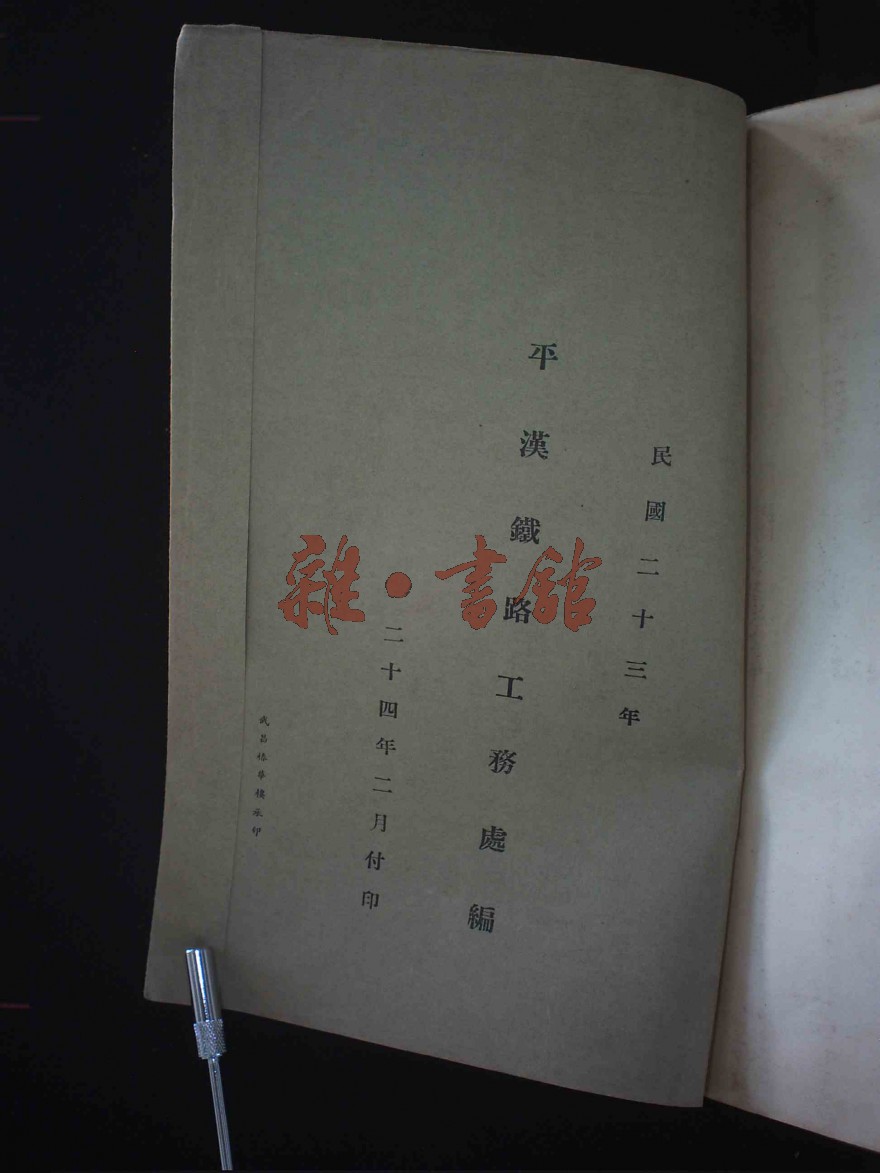 民國二十三年
平漢鐵路工務處編
二十四年二月付印
武昌椿華樓承印
雜•書館